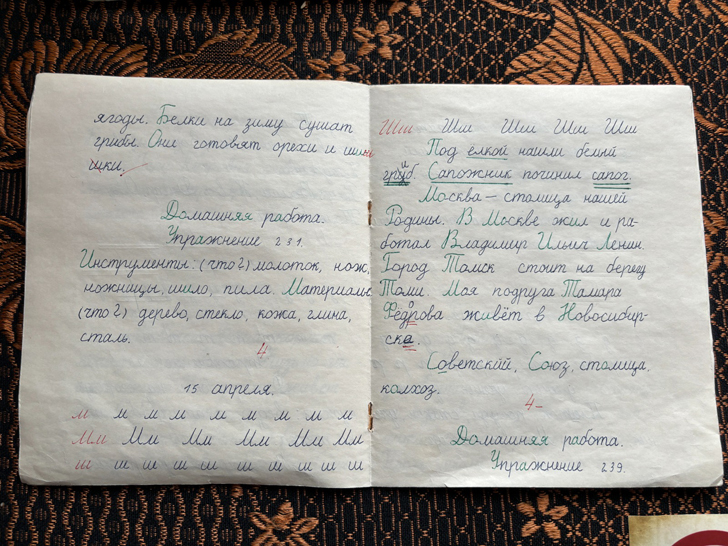 ягоды. Белки на зиму сушат
грибы. Они готовят орехи и ши
шки.
Домашняя работа.
Упражнение 231.
Инструменты: (что?) молоток, нож,
ножницы, шило, пила. Материалы
(что?) дерево, стекло, кожа, глина,
сталь.
4
15 апреля.
м м м м м м м м м
Мм Мм Мм Мм Мм Мм
ш ш ш ш ш ш ш ш ш
Шш Шш Шш Шш Шш
Под ёлкой нашли белый
гриб. Сапожник починил сапог.
Москва – столица нашей
Родины. В Москве жил и ра-
ботал Владимир Ильич Ленин.
Город Томск стоит на берегу
Томи. Моя подруга Тамара
Федорова живёт в Новосибир-
ске.
Советский, Союз, столица,
колхоз.
4-
Домашняя работа.
Упражнение 239.